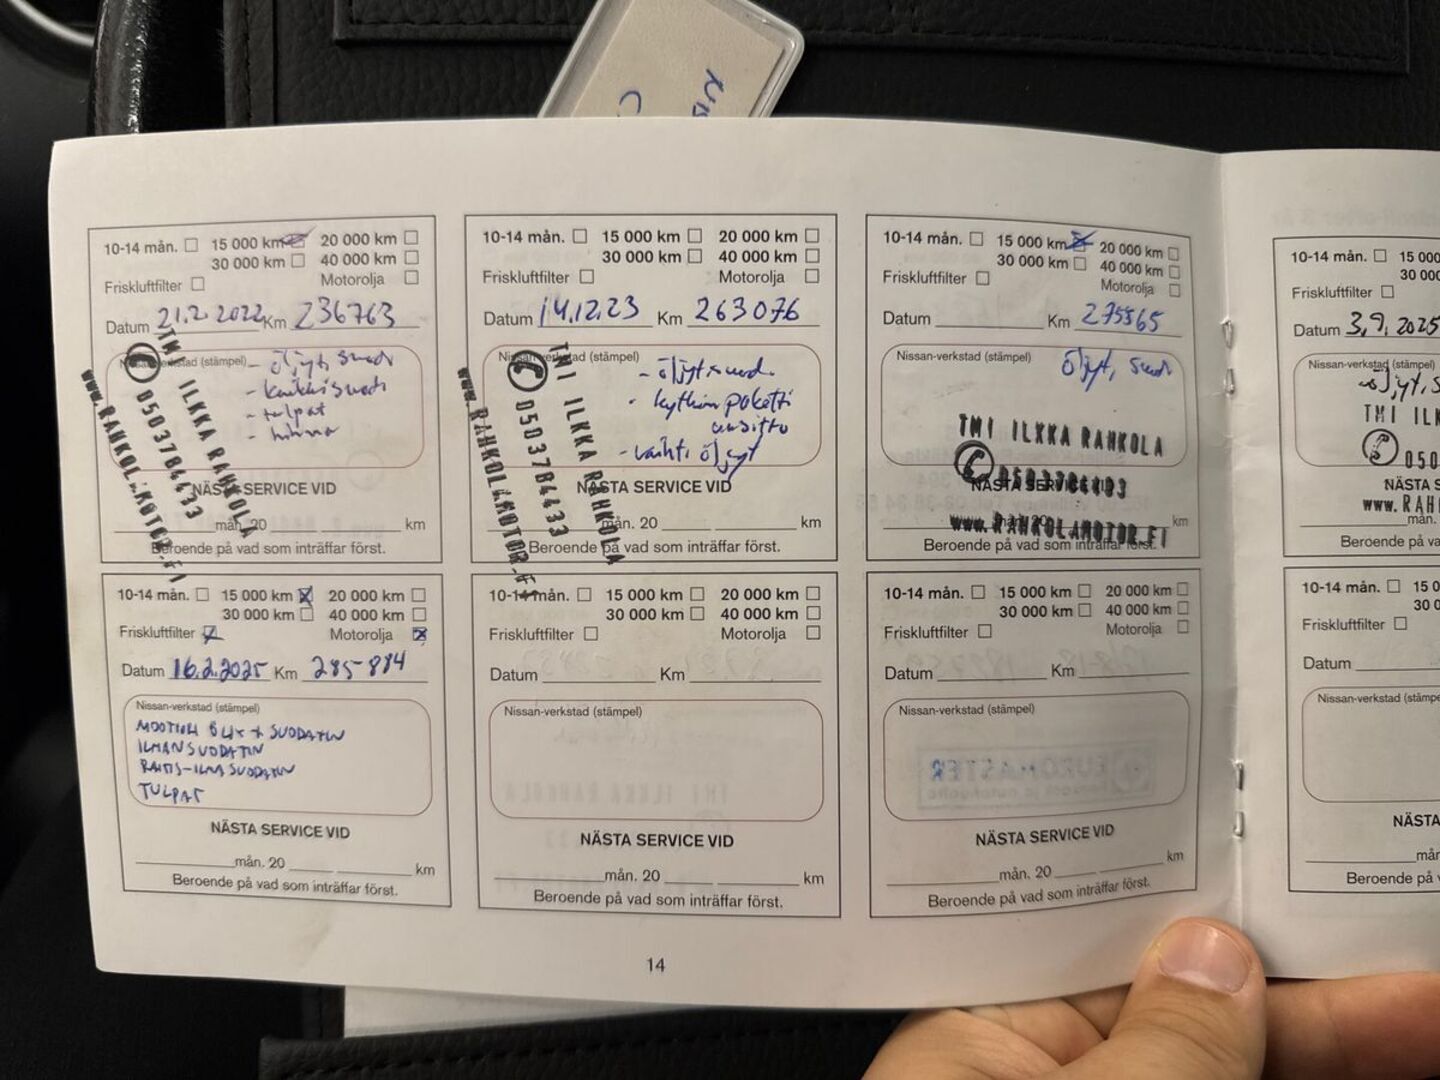 10-14 mån. 15 000 km 20 000 km
30 000 km 40 000 km
Friskluftfilter Motorolja
Datum 21.2.2022 Km 236763
Nissan-verkstad (stämpel)
- öljyt, suod
- tulpat
TMI ILKKA RAHKOLA
0503784433
www.RAHKOLAMOTOR.FI
NÄSTA SERVICE VID
mån. 20 km
Beroende på vad som inträffar först.
10-14 mån. 15 000 km 20 000 km
30 000 km 40 000 km
Friskluftfilter Motorolja
Datum 14.12.23 Km 263076
Nissan-verkstad (stämpel)
- öljyt suod.
- kytkin paketti
uusittu
- vaihti öljyt
TMI ILKKA RAHKOLA
0503784433
www.RAHKOLAMOTOR.FI
NÄSTA SERVICE VID
mån. 20 km
Beroende på vad som inträffar först.
10-14 mån. 15 000 km 20 000 km
30 000 km 40 000 km
Friskluftfilter Motorolja
Datum Km 275565
Nissan-verkstad (stämpel)
öljyt, suod
TMI ILKKA RAHKOLA
NÄSTA SERVICE VID
www.RAHKOLAMOTOR.FI
mån. 20 km
Beroende på vad som inträffar först.
10-14 mån. 15 000
30 000
Friskluftfilter
Datum 3.9.2025
Nissan-verkstad (stämpel)
öljyt, s
TMI ILK
050
NÄSTA S
www.RAH
mån.
Beroende på va
10-14 mån. 15 000 km 20 000 km
30 000 km 40 000 km
Friskluftfilter Motorolja
Datum 16.2.2025 Km 285-884
Nissan-verkstad (stämpel)
MOOTTORI ÖLJY + SUODATIN
ILMANSUODATIN
RAITIS-ILMASUODATIN
TULPAT
NÄSTA SERVICE VID
mån. 20 km
Beroende på vad som inträffar först.
10-14 mån. 15 000 km 20 000 km
30 000 km 40 000 km
Friskluftfilter Motorolja
Datum Km
Nissan-verkstad (stämpel)
NÄSTA SERVICE VID
mån. 20 km
Beroende på vad som inträffar först.
10-14 mån. 15 000 km 20 000 km
30 000 km 40 000 km
Friskluftfilter Motorolja
Datum Km
Nissan-verkstad (stämpel)
NÄSTA SERVICE VID
mån. 20 km
Beroende på vad som inträffar först.
10-14 mån. 15 0
30 0
Friskluftfilter
Datum
Nissan-verkstad (stämpe
NÄSTA
mån
Beroende på v
14